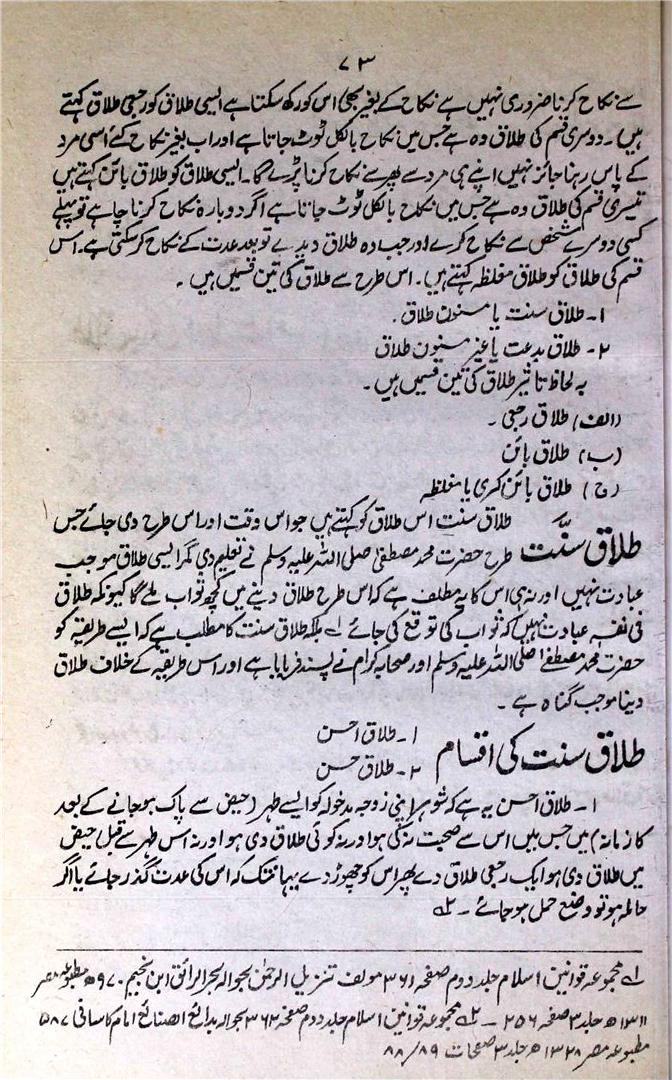 ۷۳
سے نکاح کرنا ضروری نہیں ہے نکاح کے بغیر بھی اس کو رکھ سکتا ہے ایسی طلاق کو رجعی طلاق کہتے
ہیں۔ دوسری قسم کی طلاق وہ ہے جس میں نکاح بالکل ٹوٹ جاتا ہے اور اب بغیر نکاح کے اسی مرد
کے پاس رہنا جائز نہیں اپنے ہی مرد سے پھر سے نکاح کرنا پڑے گا۔ ایسی طلاق کو طلاق بائن کہتے ہیں
تیسری قسم کی طلاق وہ ہے جس میں نکاح بالکل ٹوٹ جاتا ہے اگر دوبارہ نکاح کرنا چاہے تو پہلے
کسی دوسرے شخص سے نکاح کرے اور جب وہ طلاق دیدے تو بعد عدت کے نکاح کر سکتی ہے۔ اس
قسم کی طلاق کو طلاق مغلظہ کہتے ہیں۔ اس طرح سے طلاق کی تین قسمیں ہیں۔
۱۔ طلاق سنت یا مسنون طلاق۔
۲۔ طلاق بدعت یا غیر مسنون طلاق
بہ لحاظ تاثیر طلاق کی تین قسمیں ہیں۔
(الف) طلاق رجعی۔
(ب) طلاق بائن
(ج) طلاق بائن کبری یا مغلظہ
طلاق سنت اس طلاق کو کہتے ہیں جو اس وقت اور اس طرح دی جائے جس
طلاق سنّت طرح حضرت محمد مصطفیٰ صلی اللہ علیہ وسلم نے تعلیم دی مگر ایسی طلاق موجب
عبادت نہیں اور نہ ہی اس کا یہ مطلب ہے کہ اس طرح طلاق دینے میں کچھ ثواب ملے گا کیونکہ طلاق
فی نفسہ عبادت نہیں کہ ثواب کی توقع کی جائے ۱ے بلکہ طلاق سنت کا مطلب ہے کہ ایسے طریقہ کو
حضرت محمد مصطفےٰ صلی اللہ علیہ وسلم اور صحابہ کرام نے پسند فرمایا ہے اور اس طریقہ کے خلاف طلاق
دینا موجب گناہ ہے۔
طلاق سنت کی اقسام ۱۔ طلاق احسن
۲۔ طلاق حسن
۱۔ طلاق احسن یہ ہے کہ شوہر اپنی زوجہ مدخولہ کو ایسے طہر (حیض سے پاک ہو جانے کے بعد
کا زمانہ) میں جس میں اس سے صحبت نہ کی ہو اور نہ کوئی طلاق دی ہو اور نہ اس طہر سے قبل حیض
میں طلاق دی ہو ایک رجعی طلاق دے پھر اس کو چھوڑ دے یہاں تک کہ اس کی عدت گذر جائے یا اگر
حاملہ ہو تو وضع حمل ہو جائے۔ ۲ے
۱ے مجموعہ قوانین اسلام جلد دوم صفحہ ۳۶۱ مولف تنزیل الرحمٰن بحوالہ البحر الرائق ابن نجیم ۹۷۰ھ مطبوعہ مصر
۱۳۱۱ھ جلد ۳ صفحہ ۲۵۶ - ۲ے مجموعہ قوانین اسلام جلد دوم صفحہ ۳۶۲ بحوالہ بدائع الصنائع امام کاسانی ۵۸۷
مطبوعہ مصر ۱۳۲۸ھ جلد ۳ صفحات ۸۸/۸۹